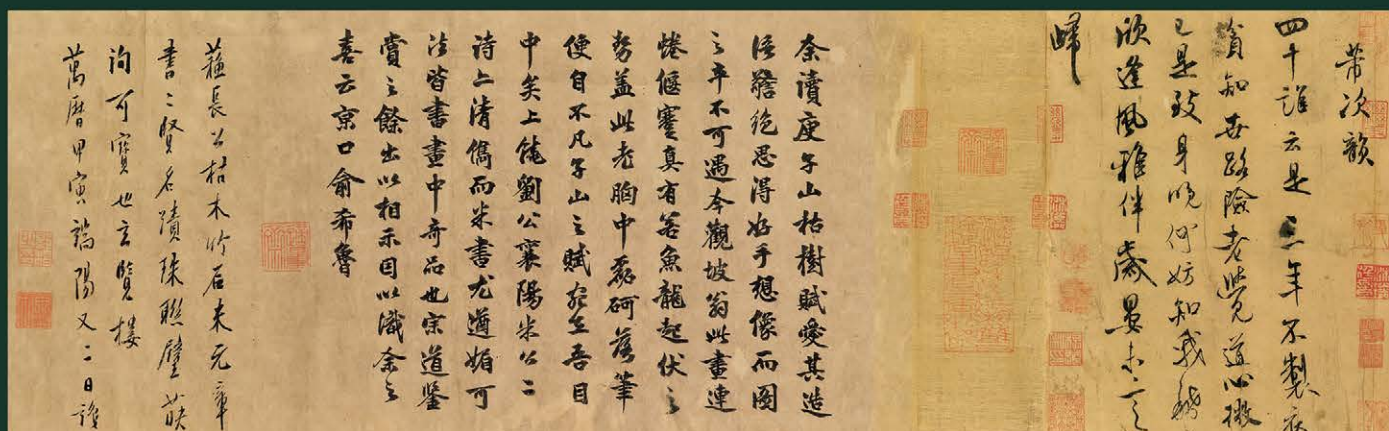 芾次韻
四十誰云是三年不製衣
貧知世路險老覺道心微
已是致身晚何妨知我稀
欣逢風雅伴歲晏未言
歸
余讀庾子山枯樹賦愛其造
語警絕思得好手想像而圖
之卒不可遇今觀坡翁此畫連
惓偃蹇真有若魚龍起伏之
勢盖此老胸中磊砢落筆
便自不凡子山之賦宛在吾目
中矣上饒劉公襄陽米公二
詩上清儁而米書尤遒媚可
法皆書畫中奇品也宗道鑒
賞之餘出以相示因以識余之
喜云京口俞希魯
蘓長公枯木竹石米元章
書二賢名蹟珠聯璧
詢可寶也玄覽樓
萬曆甲寅端陽又二日識